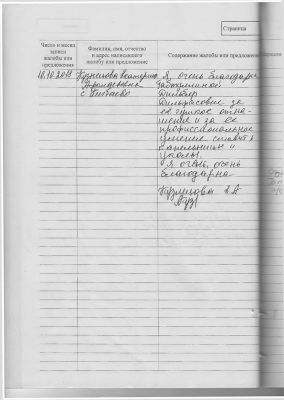 Страница
Число и месяц
записи
жалобы или
предложения
Фамилия, имя, отчество
и адрес написавшего
жалобу или предложение
Содержание жалобы или предложения
10.10.2018
Кузнецова
Я очень благодарна
за
её чуткое отно-
шение и за ее
профессиональное
умение ставить
капельницы и
уколы.
Я очень, очень
благодарна
Кузнецова